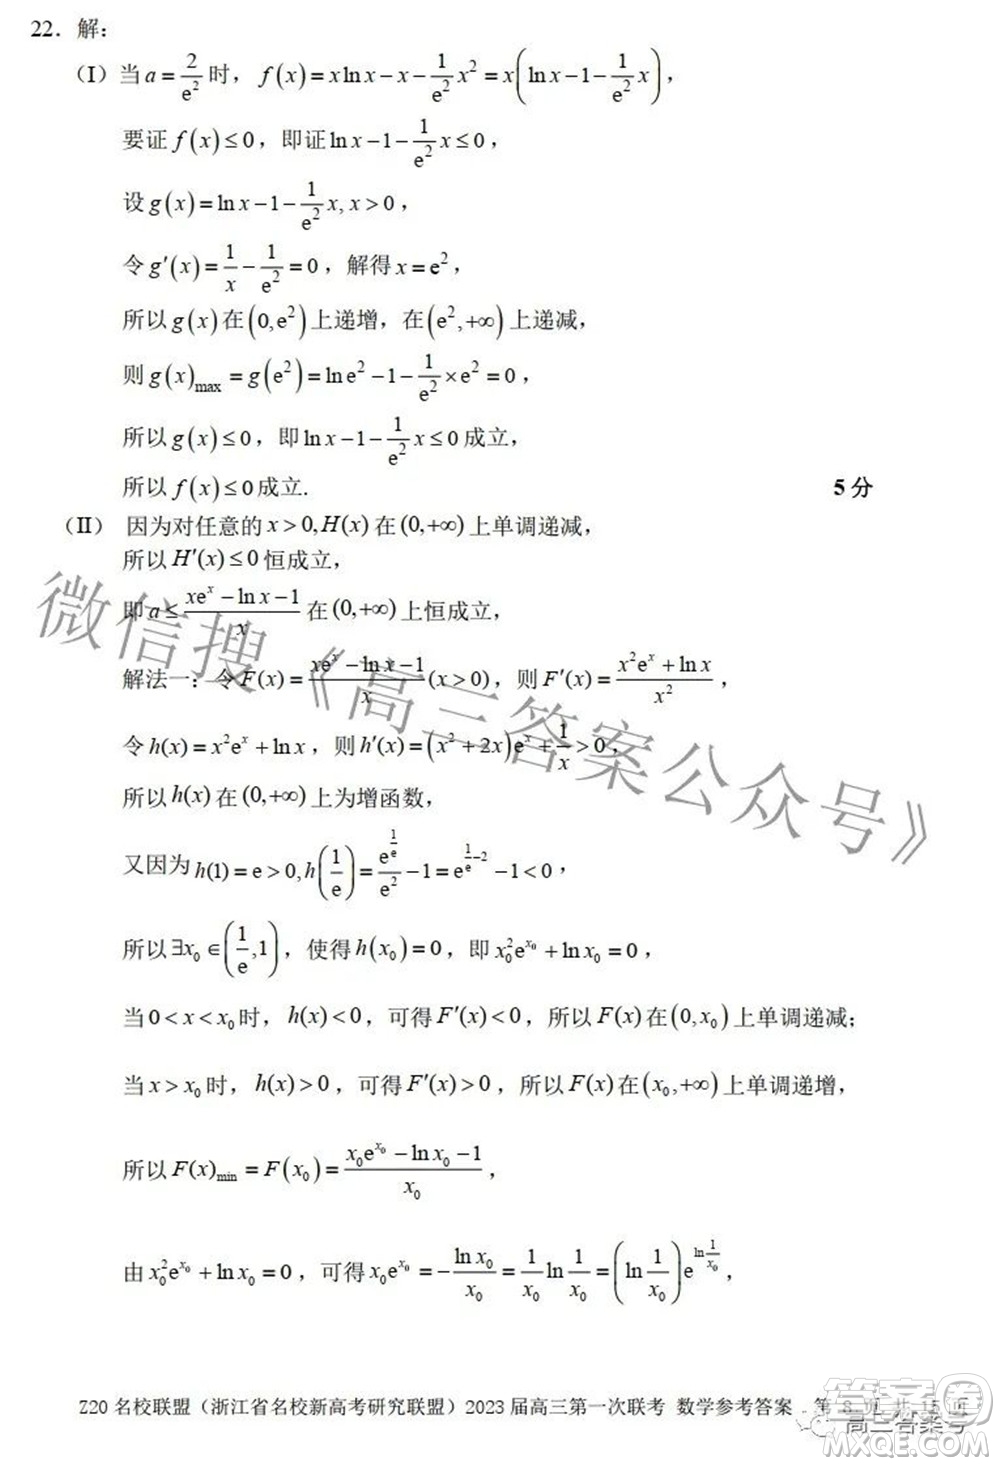 22．解：
（I）当 a = 2/e² 时，f(x) = x ln x − x − 1/e² x² = x(ln x − 1 − 1/e² x)，
要证 f(x) ≤ 0，即证 ln x − 1 − 1/e² x ≤ 0，
设 g(x) = ln x − 1 − 1/e² x, x > 0，
令 g′(x) = 1/x − 1/e² = 0，解得 x = e²，
所以 g(x) 在 (0, e²) 上递增，在 (e², +∞) 上递减，
则 g(x)max = g(e²) = ln e² − 1 − 1/e² × e² = 0，
所以 g(x) ≤ 0，即 ln x − 1 − 1/e² x ≤ 0 成立，
所以 f(x) ≤ 0 成立. 5 分
（II） 因为对任意的 x > 0, H(x) 在 (0, +∞) 上单调递减，
所以 H′(x) ≤ 0 恒成立，
即 a ≤ (xeˣ − ln x − 1)/x 在 (0, +∞) 上恒成立，
解法一：令 F(x) = (xeˣ − ln x − 1)/x (x > 0)，则 F′(x) = (x²eˣ + ln x)/x²，
令 h(x) = x²eˣ + ln x，则 h′(x) = (x² + 2x)eˣ + 1/x > 0，
所以 h(x) 在 (0, +∞) 上为增函数，
又因为 h(1) = e > 0, h(1/e) = e^(1/e)/e² − 1 = e^(1/e − 2) − 1 < 0，
所以 ∃x₀ ∈ (1/e, 1)，使得 h(x₀) = 0，即 x₀²e^(x₀) + ln x₀ = 0，
当 0 < x < x₀ 时，h(x) < 0，可得 F′(x) < 0，所以 F(x) 在 (0, x₀) 上单调递减；
当 x > x₀ 时，h(x) > 0，可得 F′(x) > 0，所以 F(x) 在 (x₀, +∞) 上单调递增，
所以 F(x)min = F(x₀) = (x₀e^(x₀) − ln x₀ − 1)/x₀，
由 x₀²e^(x₀) + ln x₀ = 0，可得 x₀e^(x₀) = −ln x₀/x₀ = 1/x₀ ln 1/x₀ = (ln 1/x₀)e^(ln 1/x₀)，
微信搜《高三答案公众号》
Z20 名校联盟（浙江省名校新高考研究联盟）2023 届高三第一次联考 数学参考答案 第 8 页 共 15 页
高三答案号
答案圈
MXQE.COM